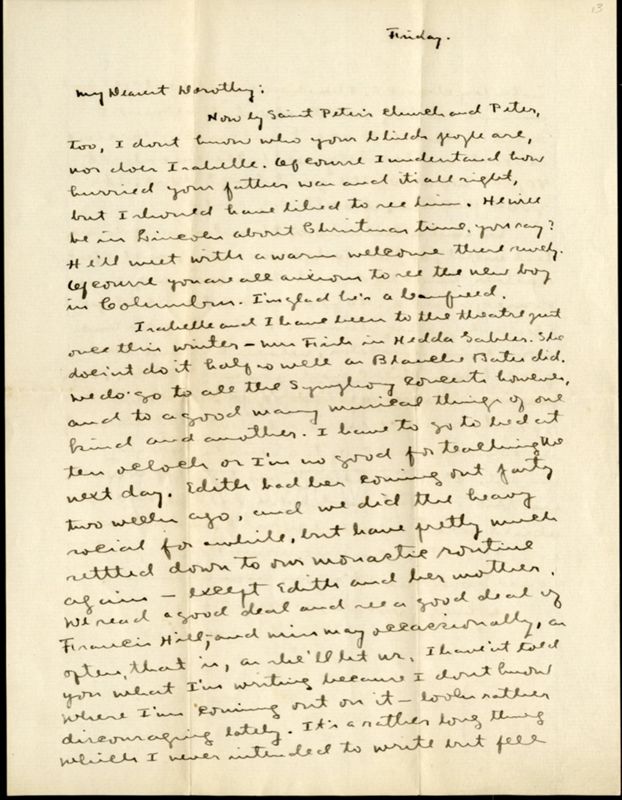 13
Friday.
My Dearest Dorothy:
Now by Saint Peter's church and Peter,
Too, I dont know who your blinds people are,
nor does Isabelle. Of course I understand how
hurried your father was and its all right,
but I should have liked to see him. He will
be in Lincoln about Christmas time, you say?
He'll meet with a warm welcome there surely.
Of course you are all anxious to see the new boy
in Columbus. I'm glad he's a Canfield.
Isabelle and I have been to the theatre just
once this winter – Mrs Fiske in Hedda Gabler. She
doesn't do it half so well as Blanche Bates did.
We do go to all the Symphony Concerts however,
and to a good many musical things of one
kind and another. I have to go to bed at
ten oclock or I'm no good for teaching the
next day. Edith had her coming out party
two weeks ago, and we did the heavy
social for awhile, but have pretty much
settled down to our monastic routine
again – except Edith and her mother.
We read a good deal and see a good deal of
Francis Hill, and miss May occassionally, as
often, that is, as she'll let us. I haven't told
you what I'm writing because I dont know
where I'm coming out on it – looks rather
discouraging lately. It's a rather long thing
which I never intended to write but fell